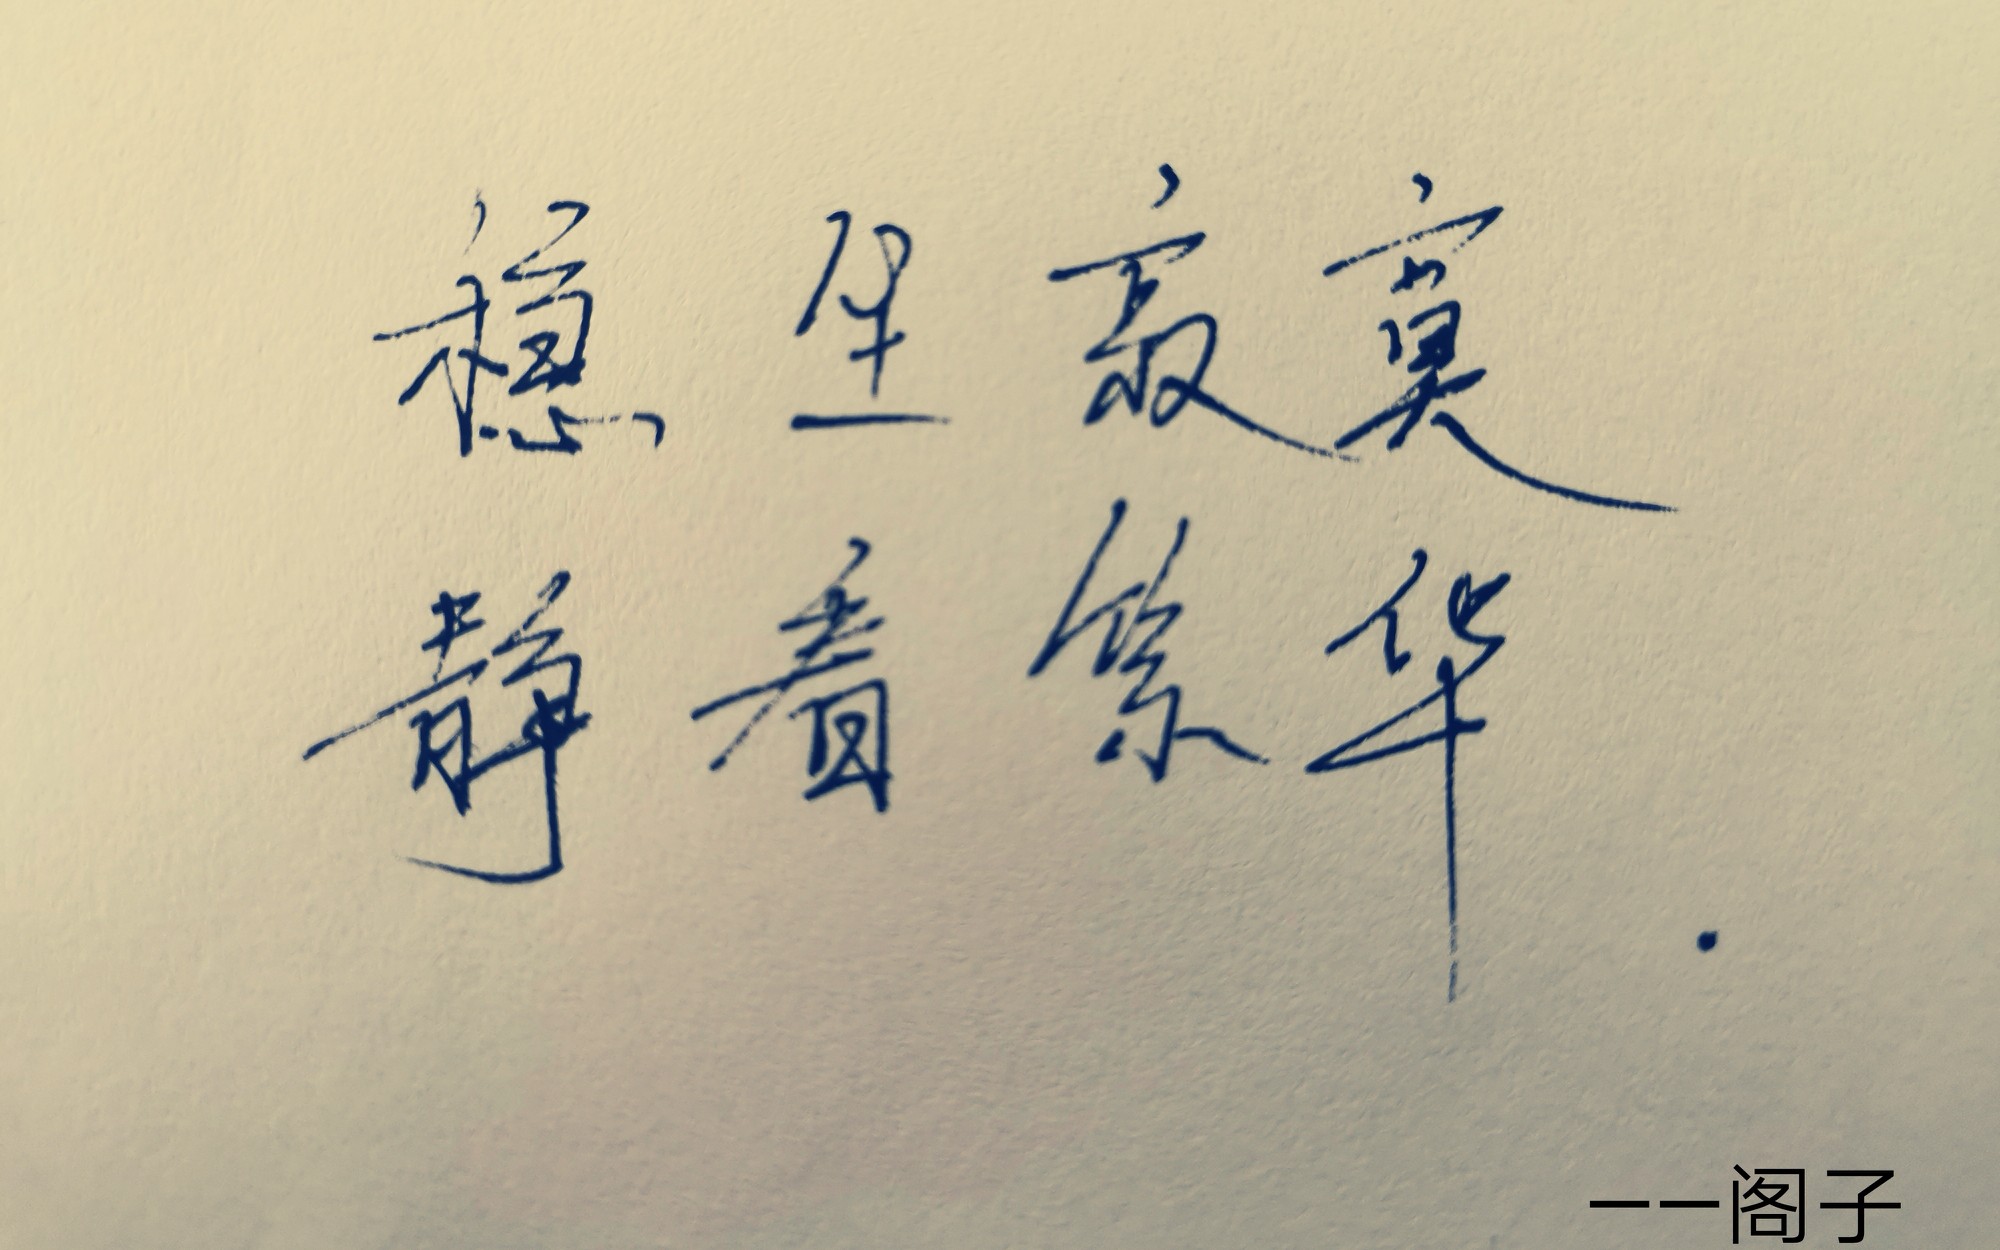 稳坐寂寞
静看繁华.
——阁子